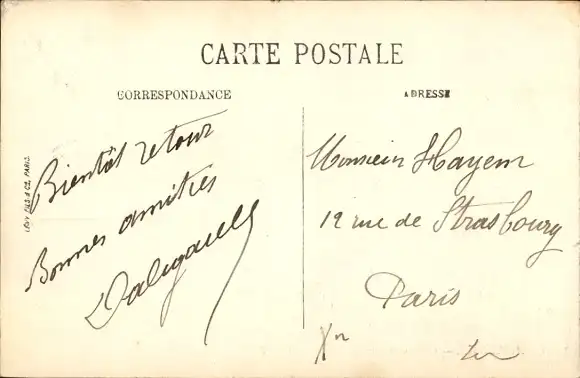 CARTE POSTALE
CORRESPONDANCE
ADRESSE
LÉVY FILS & Cie, PARIS.
Bientôt retour
Bonnes amitiés
Monsieur Hayem
12 rue de Strasbourg
Paris
Xn